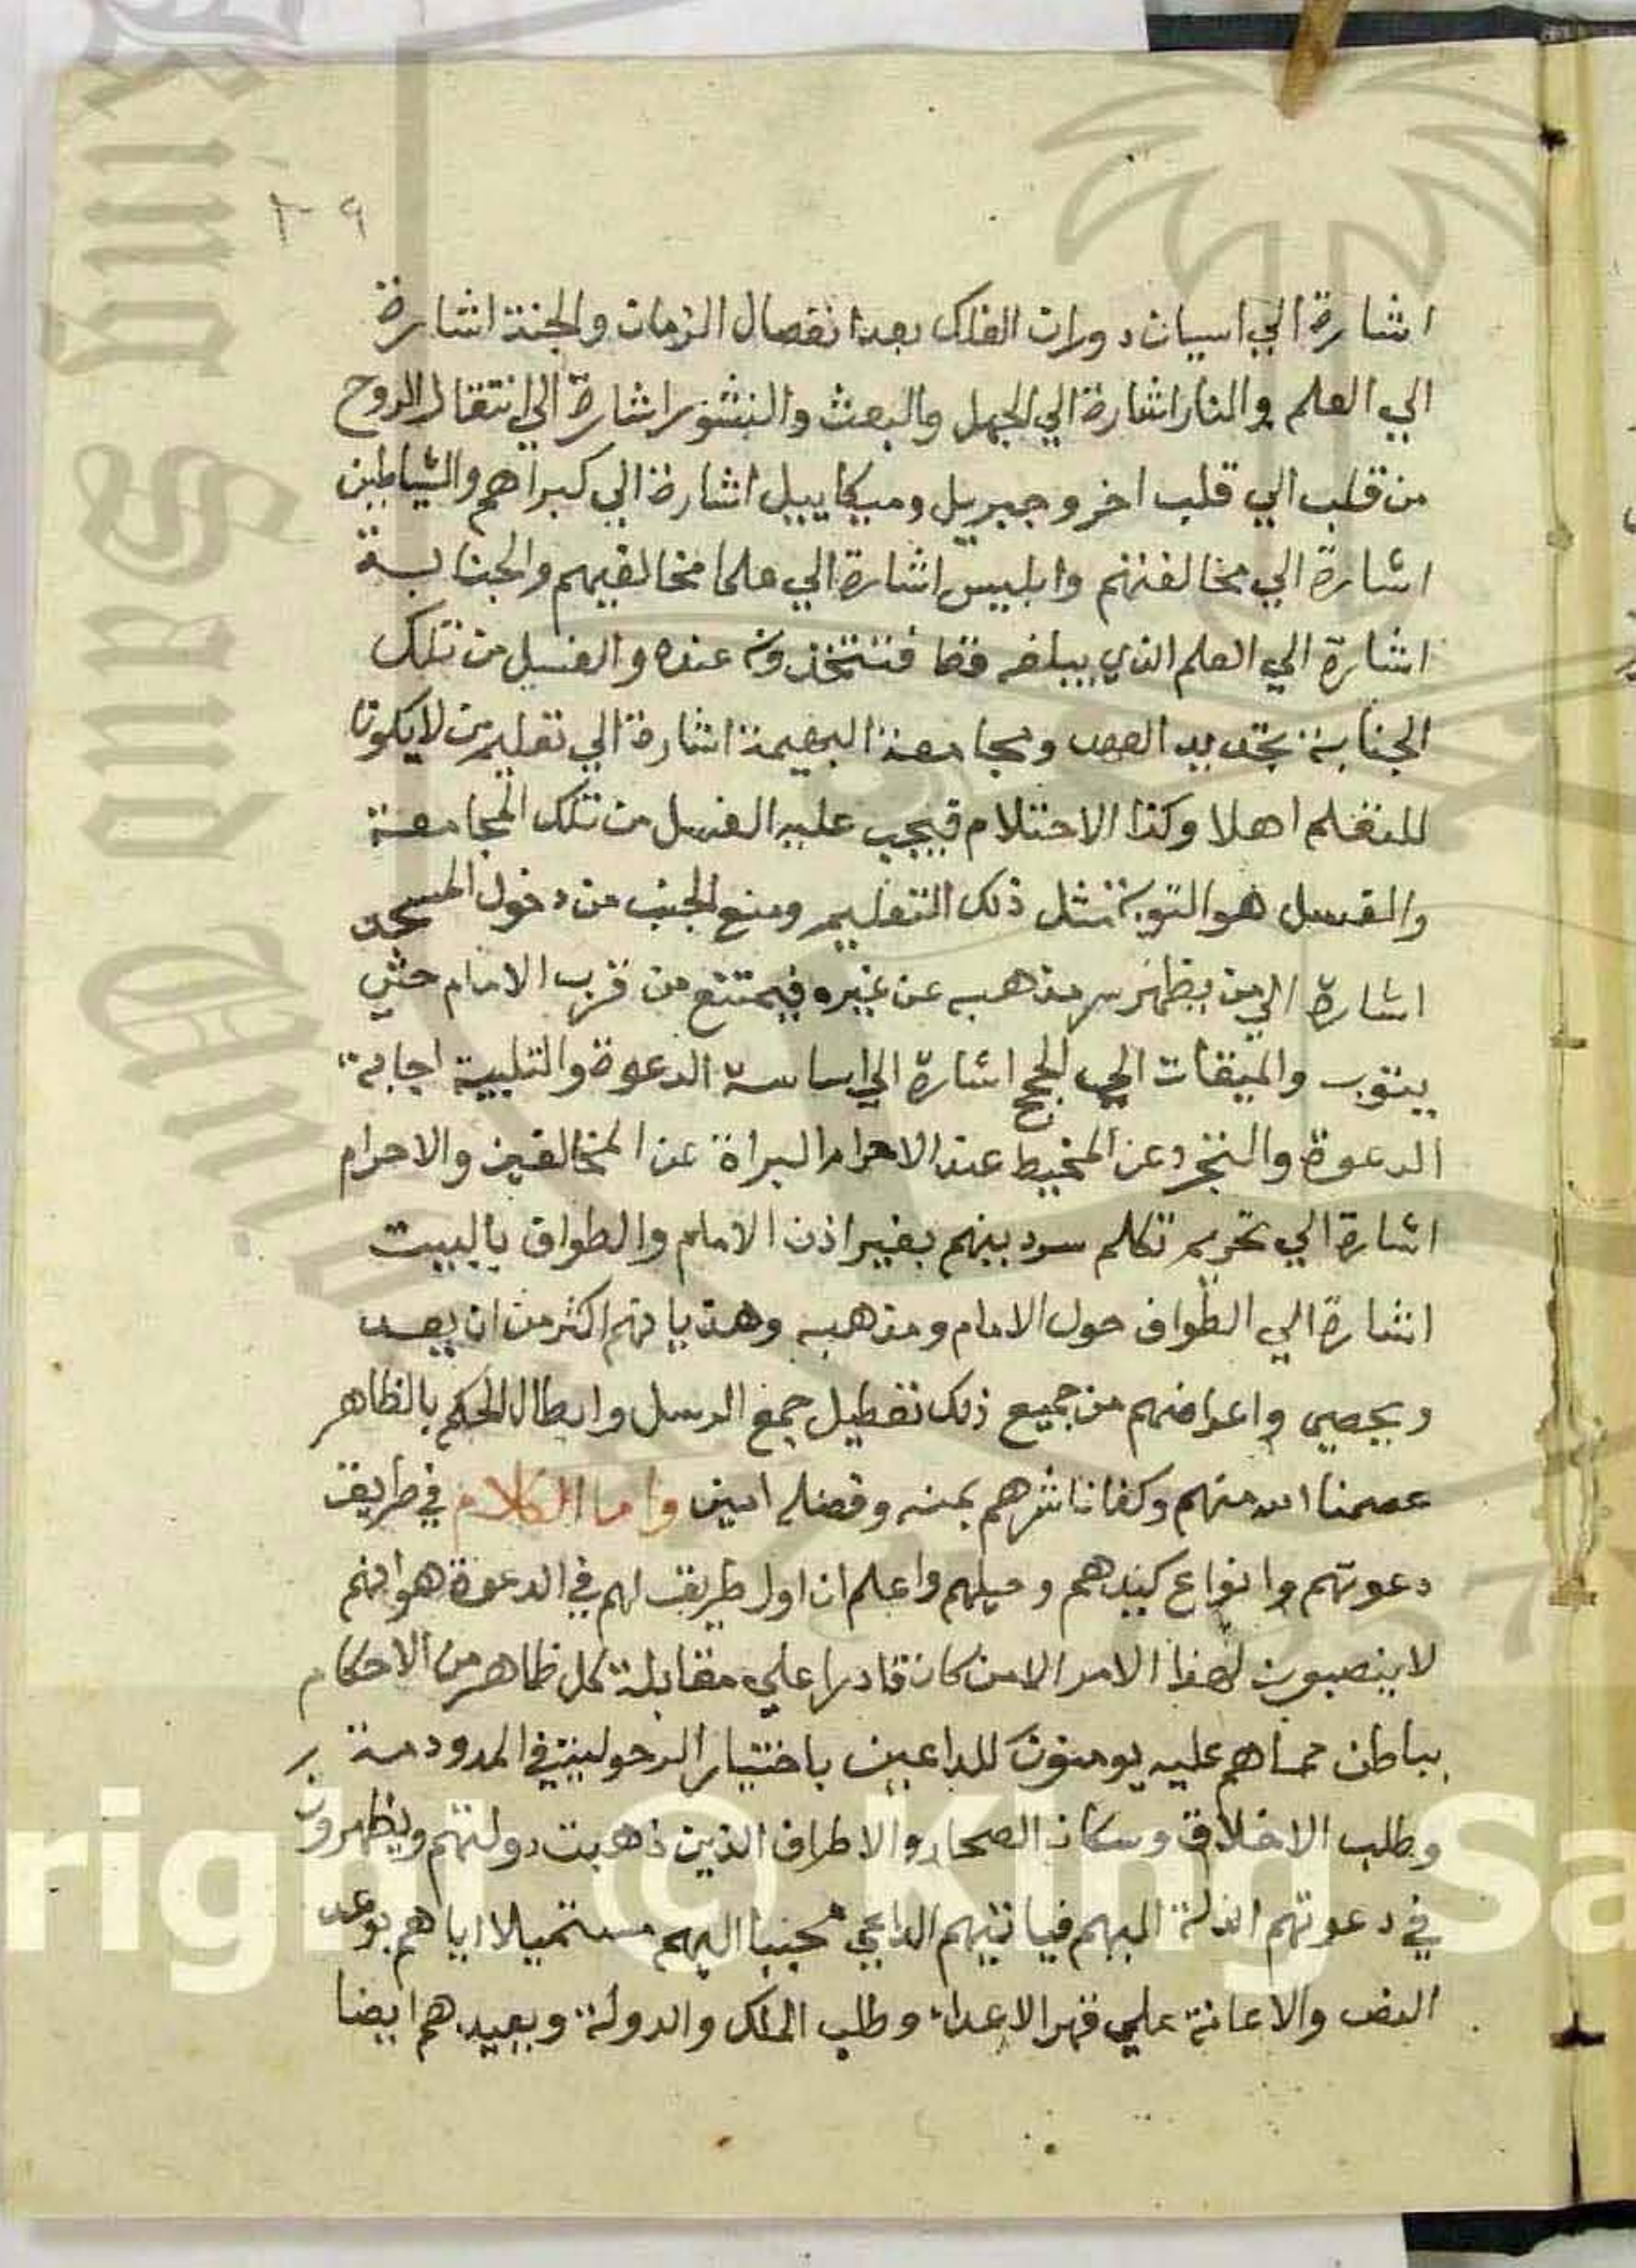 ١٠٩
اشارة الي اسيان دوران الفلك بعد انفصال الزمان والجنة اشارة
الي العلم والنار اشارة الي الجهل والبعث والنشور اشارة الي انتقال الروح
من قلب الي قلب اخر وجبريل وميكاييل اشارة الي كبراهم والشياطين
اشارة الي مخالفتهم وابليس اشارة الي علما مخالفيهم والجنابة
اشارة الي العلم الذي يبلغه فتتخذونه عنده والغسل من تلك
الجنابة تجديد العهد ومجامعة البهيمة اشارة الي تعليم من لا يكون
للتعلم اهلا وكذا الاحتلام فيجب عليه الغسل من تلك المجامعة
والغسل هو التوبة مثل ذلك التعليم ومنع الجنب من دخول المسجد
اشارة الي من يظهر سر مذهبه عن غيره فيمتنع من قرب الامام حتي
يتوب والميقات الي الحج اشارة الي اساسة الدعوة والتلبية اجابة
الدعوة والتجرد عن المخيط عند الاحرام البراة عن المخالفين والاحرام
اشارة الي تحريم تكلم سرد بينهم بغير اذن الامام والطواف بالبيت
اشارة الي الطواف حول الامام ومذهبه وهذياتهم اكثر من ان يعد
ويحصي واعراضهم من جميع ذلك تعطيل جمع الرسل وابطال الحكم بالظاهر
عصمنا الله منهم وكفانا شرهم بمنه وفضله امين واما الكلام في طريقة
دعوتهم وانواع كيدهم وحيلهم واعلم ان اول طريقة لهم في الدعوة هو انهم
لا ينصبون لهذا الامر الا من كان قادرا علي مقابلة كل ظاهر من الاحكام
بباطن مما هم عليه يومنون للداعين باختيار الدخولين في المدودمة
وطلب الاخلاق وسكان الصحار والاطراف الذين ذهبت دولتهم ويظهرون
في دعوتهم الذلة اليهم فياتيهم الداعي مجنبا اليهم مستميلا اياهم بوعد
النص والاعانة علي قهر الاعداء وطلب الملك والدولة وبعيدهم ايضا